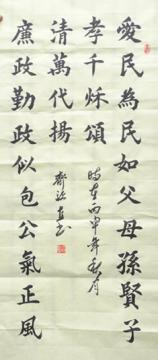 愛民為民如父母孫賢子
孝千秌頌
時在丙申年秋月
廉政勤政似包公氣正風
清萬代揚
書